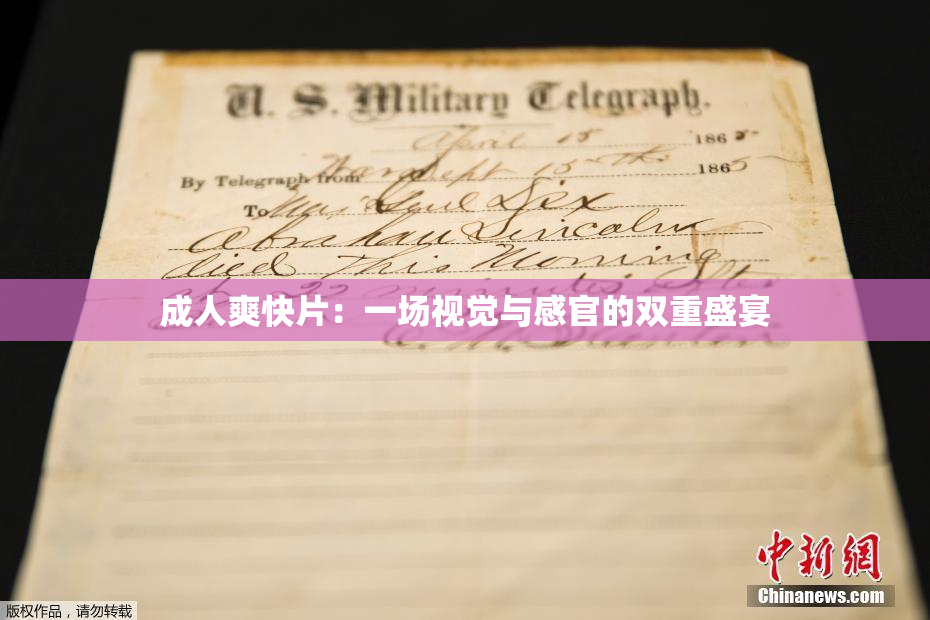 U. S. Military Telegraph.
April 15 1865
By Telegraph from War Dept 15th 1865
To Maj Genl Dix
Abraham Lincoln
died This Morning
at 22 minutes after
成人爽快片：一场视觉与感官的双重盛宴
E. M. Stanton
中新网
Chinanews.com
版权作品，请勿转载